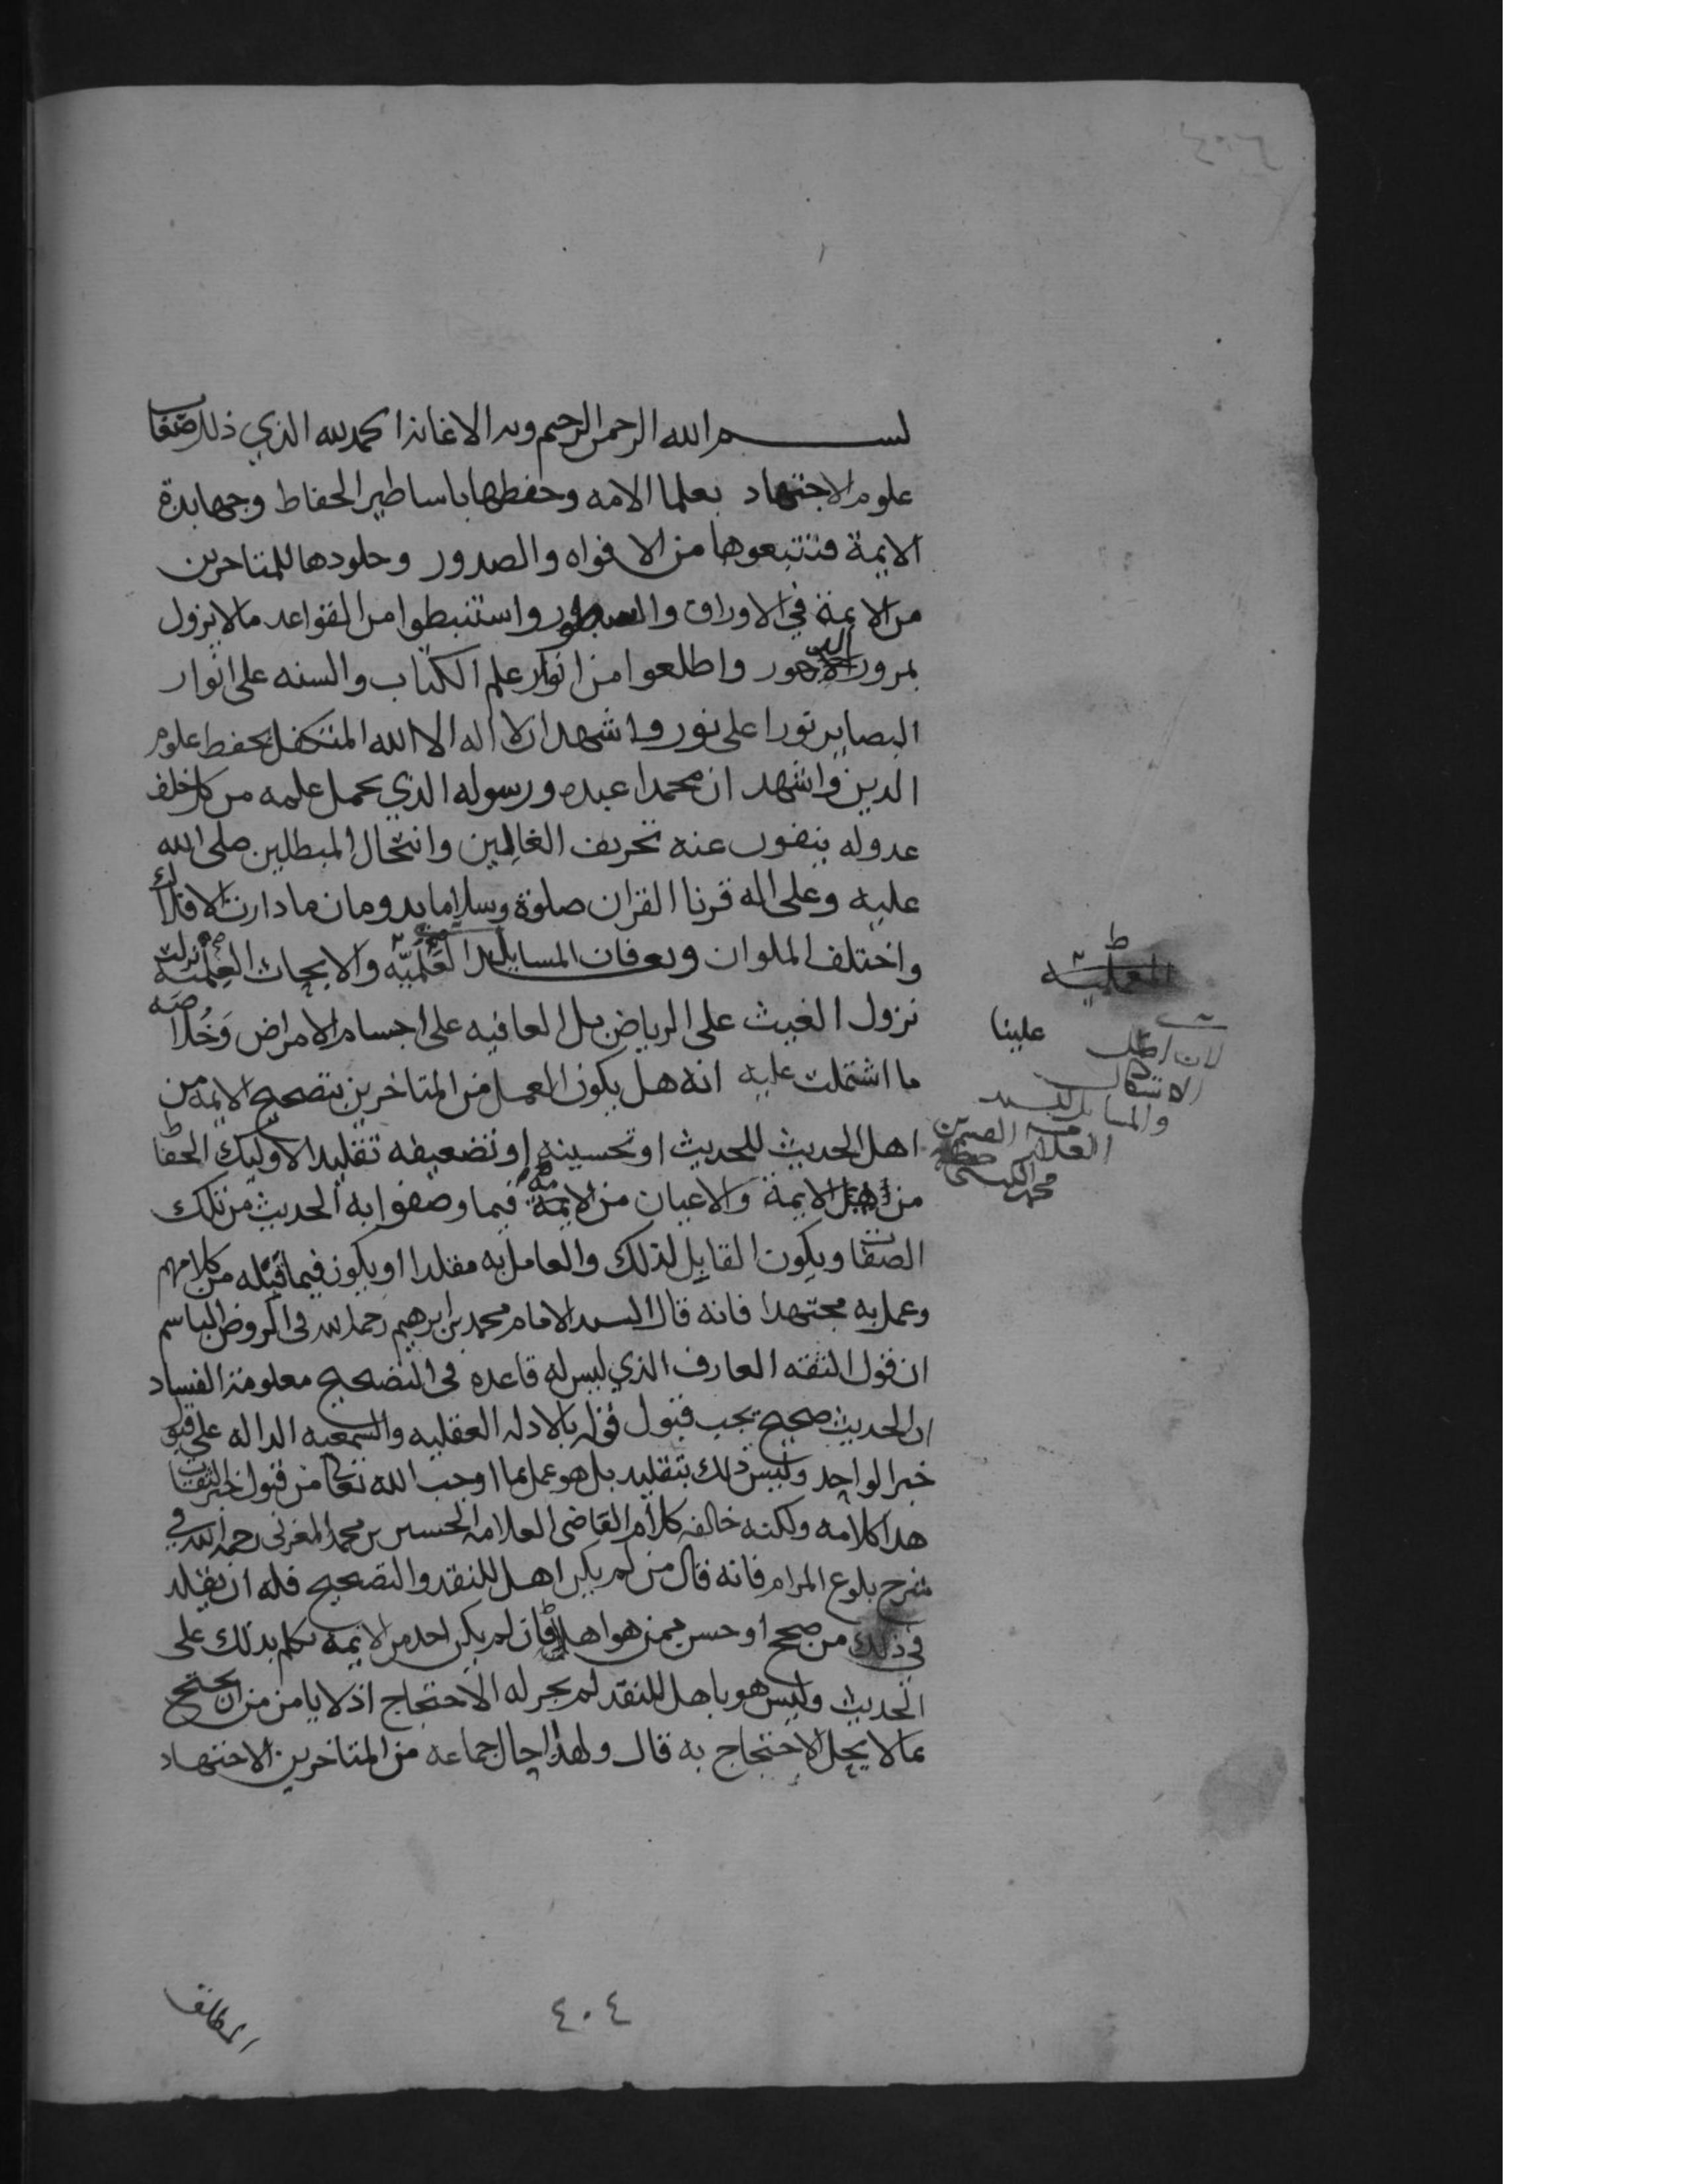 بســـــم الله الرحمن الرحيم وبه الاعانة الحمد لله الذي ذلل صعاب
علوم الاجتهاد بعلما الامه وحفظها باساطير الحفاظ وجهابذة
الايمة فتتبعوها من الافواه والصدور وخلدوها للمتاخرين
من الايمة في الاوراق والسطور واستنبطوا من القواعد ما لا يزول
بمرور الدهور واطلعوا من انوار علم الكتاب والسنه على انوار
البصاير نورا على نور واشهد ان لا اله الا الله المتكفل بحفظ علوم
الدين واشهد ان محمدا عبده ورسوله الذي يحمل علمه من كل خلف
عدوله ينفون عنه تحريف الغالين وانتحال المبطلين صلى الله
عليه وعلى اله قرنا القران صلوة وسلاما يدومان ما دارت الافلاك
واختلف الملوان وبعد فان المسايل العلميه والابحاث العلميه نزلت
نزول الغيث على الرياض بل العافيه على اجسام الامراض وخلاصه
ما اشتملت عليه انه هل يكون العمل من المتاخرين بتصحيح الايمه من
اهل الحديث للحديث او تحسينه او تضعيفه تقليد الاوليك الحفاظ
من الايمة والاعيان من الايمة فيما وصفوا به الحديث من تلك
الصفات ويكون القايل لذلك والعامل به مقلدا او يكون فيما قبله من كلامهم
وعمل به مجتهدا فانه قال السيد الامام محمد بن ابرهيم رحمه الله في الروض الباسم
ان قول الثقه العارف الذي ليس له قاعده في التصحيح معلومة الفساد
ان الحديث صحيح يجب قبول قوله بالادله العقليه والسمعيه الداله على قبول
خبر الواحد وليس ذلك بتقليد بل هو عمل بما اوجب الله تعالى من قبول خبر الثقات
هذا كلامه ولكنه خالفه كلام القاضي العلامه الحسين بن محمد المغربي رحمه الله في
شرح بلوغ المرام فانه قال من لم يكن اهل للنقد والتصحيح فله ان يقلد
في ذلك من صحح او حسن ممن هو اهل فان لم يكن احد من الايمه تكلم بذلك على
الحديث وليس هو باهل للنقد لم يجز له الاحتجاج اذ لا يامن من ان يحتج
بما لا يحل الاحتجاج به قال ولهذا احال جماعه من المتاخرين الاجتهاد
علينا
محمد
المطلق
٤٠٤